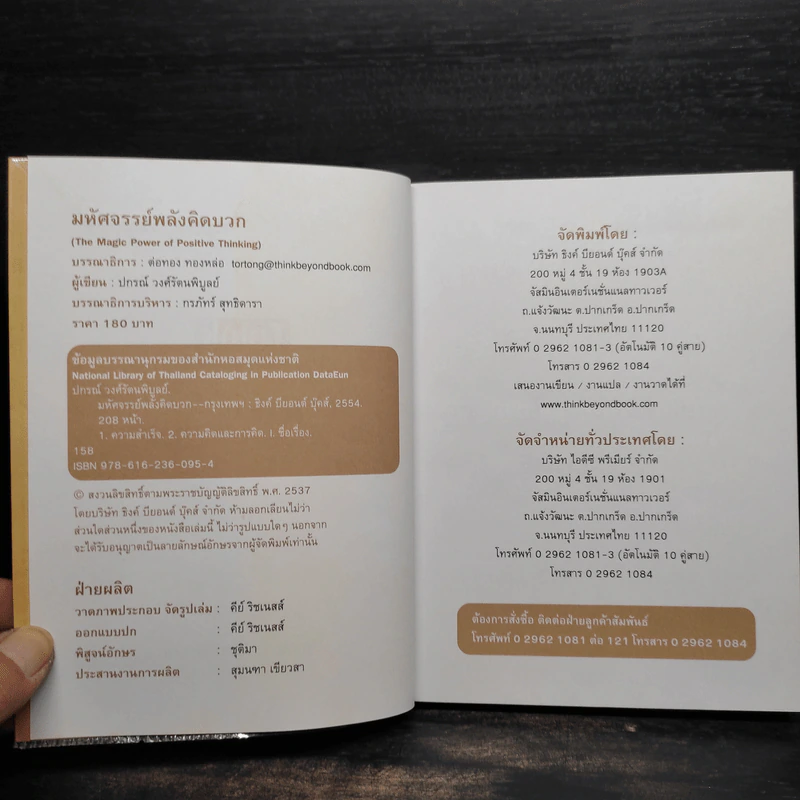 มหัศจรรย์พลังคิดบวก
(The Magic Power of Positive Thinking)
บรรณาธิการ : ต่อทอง ทองหล่อ tortong@thinkbeyondbook.com
ผู้เขียน : ปกรณ์ วงศ์รัตนพิบูลย์
บรรณาธิการบริหาร : กรภัทร์ สุทธิดารา
ราคา 180 บาท
ข้อมูลบรรณานุกรมของสำนักหอสมุดแห่งชาติ
National Library of Thailand Cataloging in Publication DataEun
ปกรณ์ วงศ์รัตนพิบูลย์.
มหัศจรรย์พลังคิดบวก--กรุงเทพฯ : ธิงค์ บียอนด์ บุ๊คส์, 2554.
208 หน้า.
1. ความสำเร็จ. 2. ความคิดและการคิด. I. ชื่อเรื่อง.
158
ISBN 978-616-236-095-4
© สงวนลิขสิทธิ์ตามพระราชบัญญัติลิขสิทธิ์ พ.ศ. 2537
โดยบริษัท ธิงค์ บียอนด์ บุ๊คส์ จำกัด ห้ามลอกเลียนไม่ว่า
ส่วนใดส่วนหนึ่งของหนังสือเล่มนี้ ไม่ว่ารูปแบบใดๆ นอกจาก
จะได้รับอนุญาตเป็นลายลักษณ์อักษรจากผู้จัดพิมพ์เท่านั้น
ฝ่ายผลิต
วาดภาพประกอบ จัดรูปเล่ม : คีย์ ริชเนสส์
ออกแบบปก : คีย์ ริชเนสส์
พิสูจน์อักษร : ชุติมา
ประสานงานการผลิต : สุมนฑา เขียวสา
จัดพิมพ์โดย :
บริษัท ธิงค์ บียอนด์ บุ๊คส์ จำกัด
200 หมู่ 4 ชั้น 19 ห้อง 1903A
จัสมินอินเตอร์เนชั่นแนลทาวเวอร์
ถ.แจ้งวัฒนะ ต.ปากเกร็ด อ.ปากเกร็ด
จ.นนทบุรี ประเทศไทย 11120
โทรศัพท์ 0 2962 1081-3 (อัตโนมัติ 10 คู่สาย)
โทรสาร 0 2962 1084
เสนองานเขียน / งานแปล / งานวาดได้ที่
www.thinkbeyondbook.com
จัดจำหน่ายทั่วประเทศโดย :
บริษัท ไอดีซี พรีเมียร์ จำกัด
200 หมู่ 4 ชั้น 19 ห้อง 1901
จัสมินอินเตอร์เนชั่นแนลทาวเวอร์
ถ.แจ้งวัฒนะ ต.ปากเกร็ด อ.ปากเกร็ด
จ.นนทบุรี ประเทศไทย 11120
โทรศัพท์ 0 2962 1081-3 (อัตโนมัติ 10 คู่สาย)
โทรสาร 0 2962 1084
ต้องการสั่งซื้อ ติดต่อฝ่ายลูกค้าสัมพันธ์
โทรศัพท์ 0 2962 1081 ต่อ 121 โทรสาร 0 2962 1084